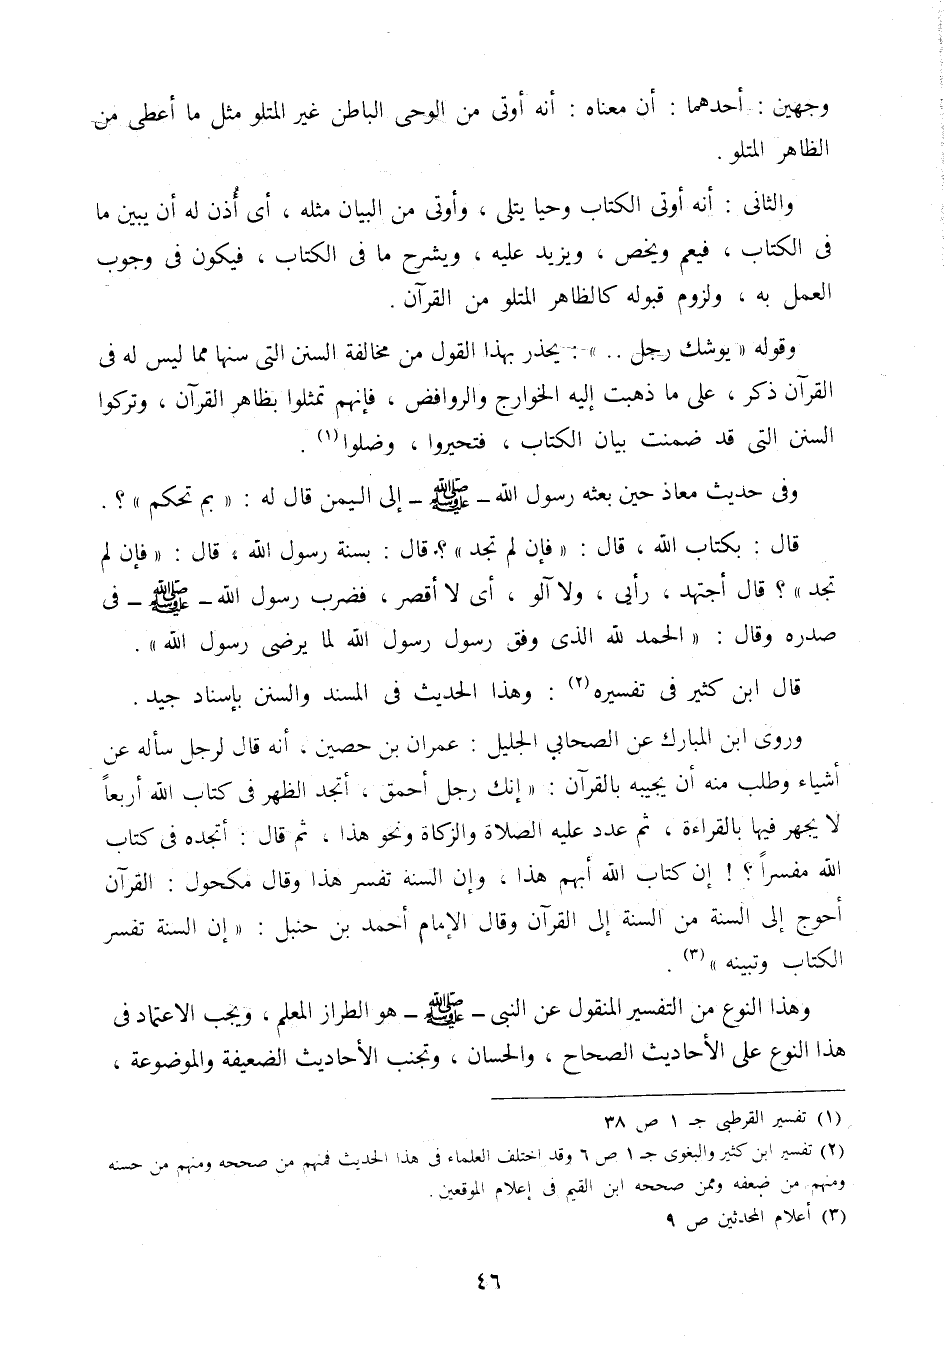 وجهين : أحدهما : أن معناه : أنه أوتى من الوحى الباطن غير المتلو مثل ما أعطى من
الظاهر المتلو .
والثانى : أنه أوتى الكتاب وحيا يتلى ، وأوتى من البيان مثله ، أى أُذن له أن يبين ما
فى الكتاب ، فيعم ويخص ، ويزيد عليه ، ويشرح ما فى الكتاب ، فيكون فى وجوب
العمل به ، ولزوم قبوله كالظاهر المتلو من القرآن .
وقوله « يوشك رجل .. » : يحذر بهذا القول من مخالفة السنن التى سنها مما ليس له فى
القرآن ذكر ، على ما ذهبت إليه الخوارج والروافض ، فإنهم تمثلوا بظاهر القرآن ، وتركوا
السنن التى قد ضمنت بيان الكتاب ، فتحيروا ، وضلوا(١) .
وفى حديث معاذ حين بعثه رسول الله ـ ﷺ ـ إلى اليمن قال له : « بم تحكم » ؟ .
قال : بكتاب الله ، قال : « فإن لم تجد » ؟. قال : بسنة رسول الله ، قال : « فإن لم
تجد » ؟ قال أجتهد ، رأيى ، ولا آلو ، أى لا أقصر ، فضرب رسول الله ـ ﷺ ـ فى
صدره وقال : « الحمد لله الذى وفق رسول رسول الله لما يرضى رسول الله » .
قال ابن كثير فى تفسيره(٢) : وهذا الحديث فى المسند والسنن بإسناد جيد .
وروى ابن المبارك عن الصحابي الجليل : عمران بن حصين ، أنه قال لرجل سأله عن
أشياء وطلب منه أن يجيبه بالقرآن : « إنك رجل أحمق ، أتجد الظهر فى كتاب الله أربعاً
لا يجهر فيها بالقراءة ، ثم عدد عليه الصلاة والزكاة ونحو هذا ، ثم قال : أتجده فى كتاب
الله مفسراً ؟ ! إن كتاب الله أبهم هذا ، وإن السنة تفسر هذا وقال مكحول : القرآن
أحوج إلى السنة من السنة إلى القرآن وقال الإمام أحمد بن حنبل : « إن السنة تفسر
الكتاب وتبينه »(٣) .
وهذا النوع من التفسير المنقول عن النبى ـ ﷺ ـ هو الطراز المعلم ، ويجب الاعتماد فى
هذا النوع على الأحاديث الصحاح ، والحسان ، وتجنب الأحاديث الضعيفة والموضوعة ،
(١) تفسير القرطبى جـ ١ ص ٣٨
(٢) تفسير ابن كثير والبغوى جـ ١ ص ٦ وقد اختلف العلماء فى هذا الحديث فمنهم من صححه ومنهم من حسنه
ومنهم من ضعفه وممن صححه ابن القيم فى إعلام الموقعين .
(٣) أعلام المحدثين ص ٩
٤٦